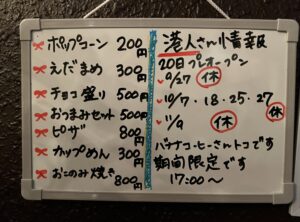 ポップコーン 200円
えだまめ 300円
チョコ盛り 500円
おつまみセット 500円
ピザ 800円
カップめん 300円
おこのみ焼き 800円
港人さん情報
20日プレオープン
9/27 休
10/7・18・25・27 休
11/9 休 休
バナナコーヒーさんトコです
期間限定です
17:00～